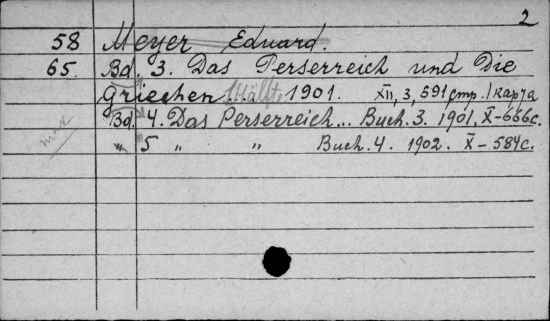 2
58 Meyer Eduard.
65. Bd. 3. Das Perserreich und Die
Griechen. 1 Hälft. 1901. XII, 3, 691 стр. 1 карта
Bd. 4. Das Perserreich... Buch. 3. 1901. X-666 с.
" 5 " " Buch. 4. 1902. X-584 с.